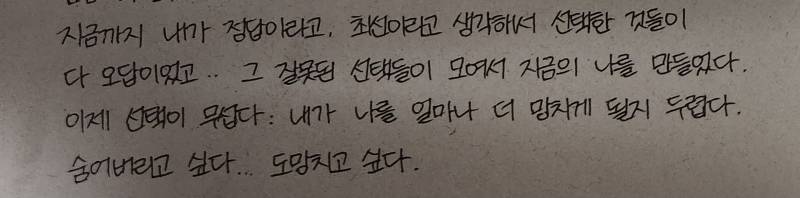 지금까지 내가 정답이라고, 최선이라고 생각해서 선택한 것들이
다 오답이었고.. 그 잘못된 선택들이 모여서 지금의 나를 만들었다.
이제 선택이 무섭다: 내가 나를 얼마나 더 망치게 될지 두렵다.
숨어버리고 싶다... 도망치고 싶다.